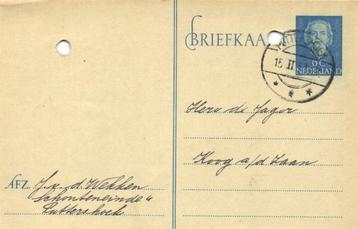 BRIEFKAA
6 C
NEDERLAND
15 II
Hero de Jager
Koog a/d Zaan
AFZ. J. v. d. Wekken
Schonteneinde